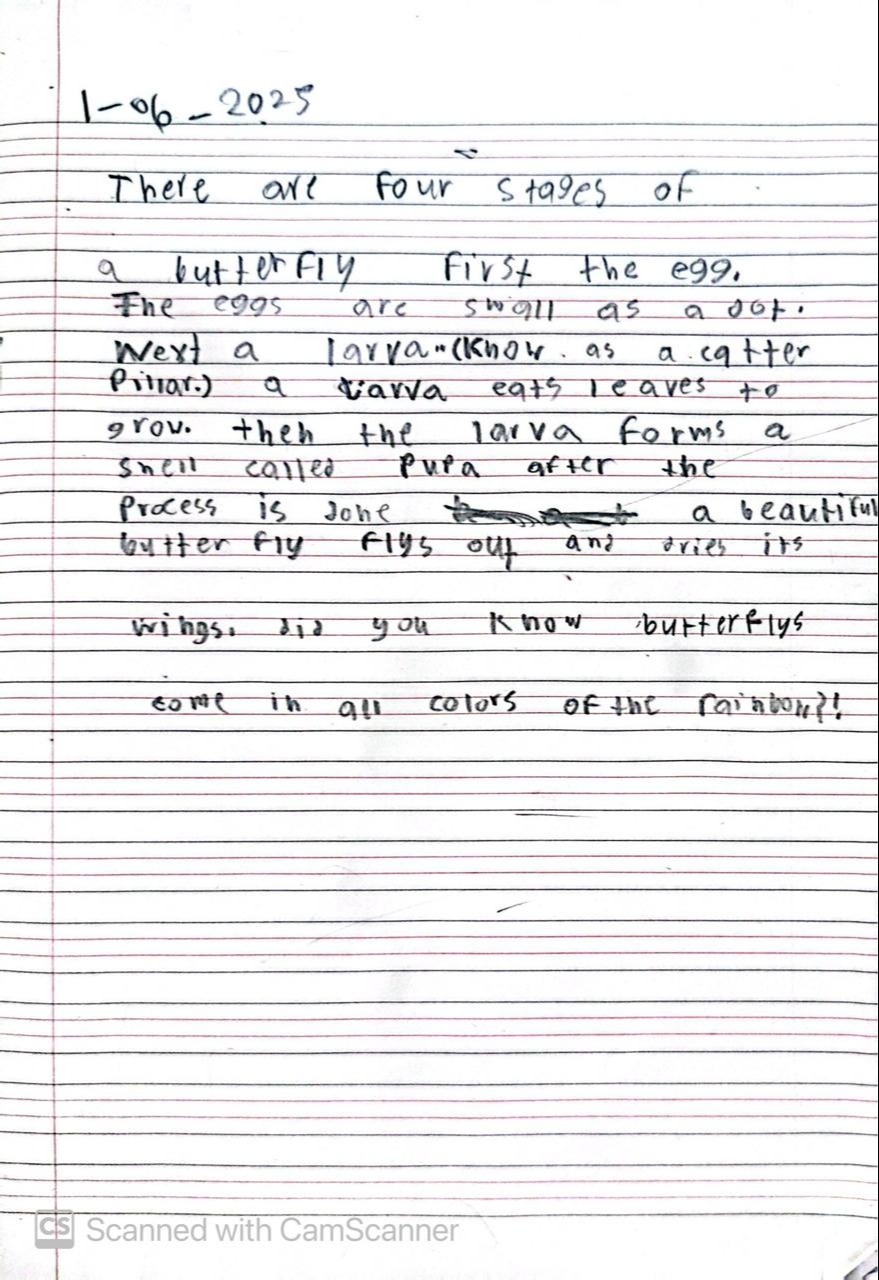 1-06-2025
There are four stages of
a butterfly first the egg.
The eggs are small as a dot.
Next a larva (Know as a catter
Pillar.) a larva eats leaves to
grow. then the larva forms a
shell called Pupa after the
Process is done a beautiful
butter fly flys out and dries its
wings. did you Know butterflys
come in all colors of the rainbow?!
CS Scanned with CamScanner